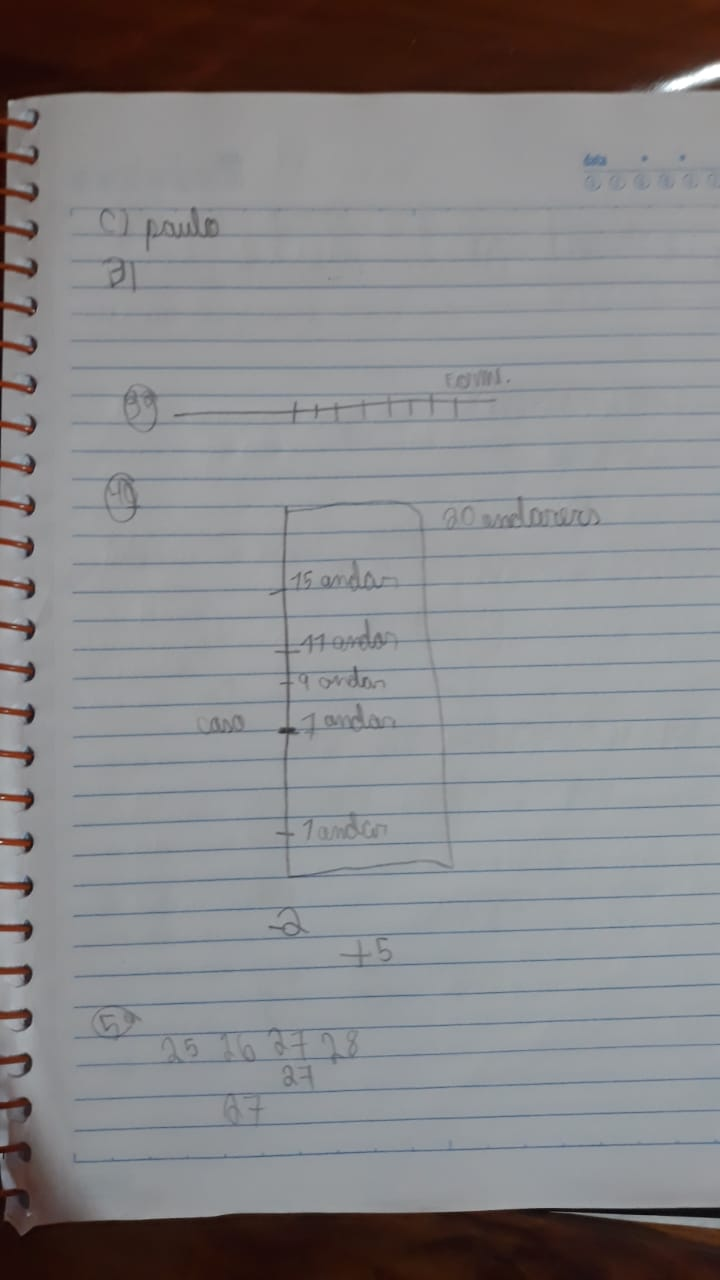 data
C) paulo
31
3ª
4ª
20 andarers
15 andar
11 andar
9 andar
caso 7 andar
1 andar
-2
+5
5ª
25 26 27 28
27
27